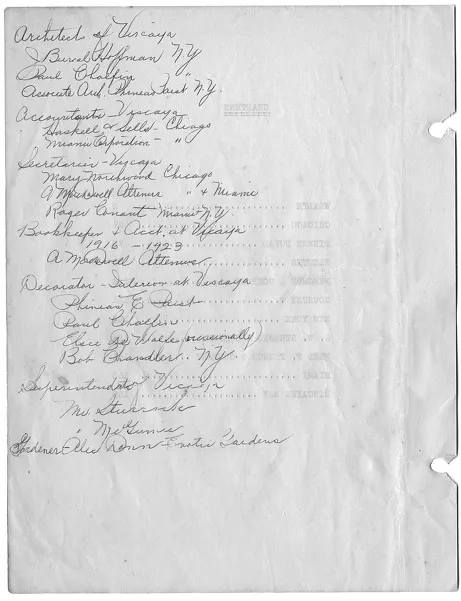 Architect of Vizcaya
J Burral Hoffman N.Y
Paul Chalfin "
Associate Arch. Phineas Paist N.Y.
Accountants - Viscaya
Haskell & Sells - Chicago
Miami Corporation - "
Secretaries - Viscaya
Mary Northwood Chicago
A Maxwell Attenus " + Miami
Roger Conant Miami + N.Y.
Bookkeeper & Acct. at Viscaya
1916 - 1923
A Maxwell Attenus
Decorator - Interior at Vescaya
Phineas E Paist
Paul Chalfin
Elsie De Wolfe (occasionally)
Bob Chandler. N.Y.
Superintendents
Mr
" McGinnis
Gardener Alec Exotic Gardens